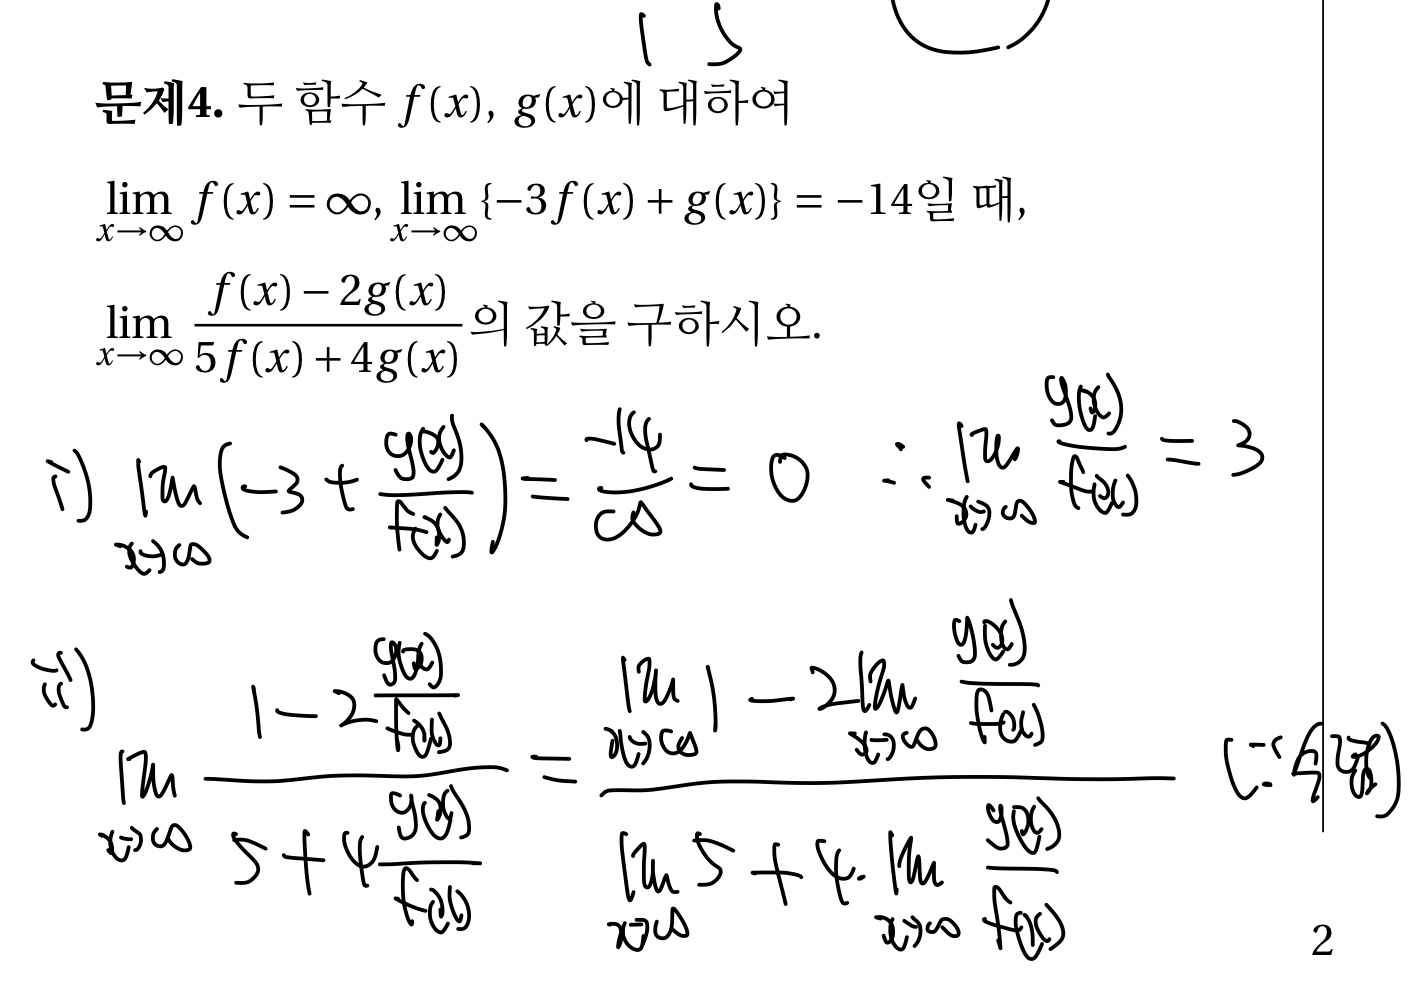 문제4. 두 함수 f(x), g(x)에 대하여
lim_{x→∞} f(x) = ∞, lim_{x→∞} {−3f(x) + g(x)} = −14일 때,
lim_{x→∞} (f(x) − 2g(x))/(5f(x) + 4g(x)) 의 값을 구하시오.
i) lim_{x→∞} (−3 + g(x)/f(x)) = −14/∞ = 0 ∴ lim_{x→∞} g(x)/f(x) = 3
ii) lim_{x→∞} (1 − 2 g(x)/f(x))/(5 + 4 g(x)/f(x)) = (lim_{x→∞} 1 − 2 lim_{x→∞} g(x)/f(x))/(lim_{x→∞} 5 + 4· lim_{x→∞} g(x)/f(x)) (∵
2